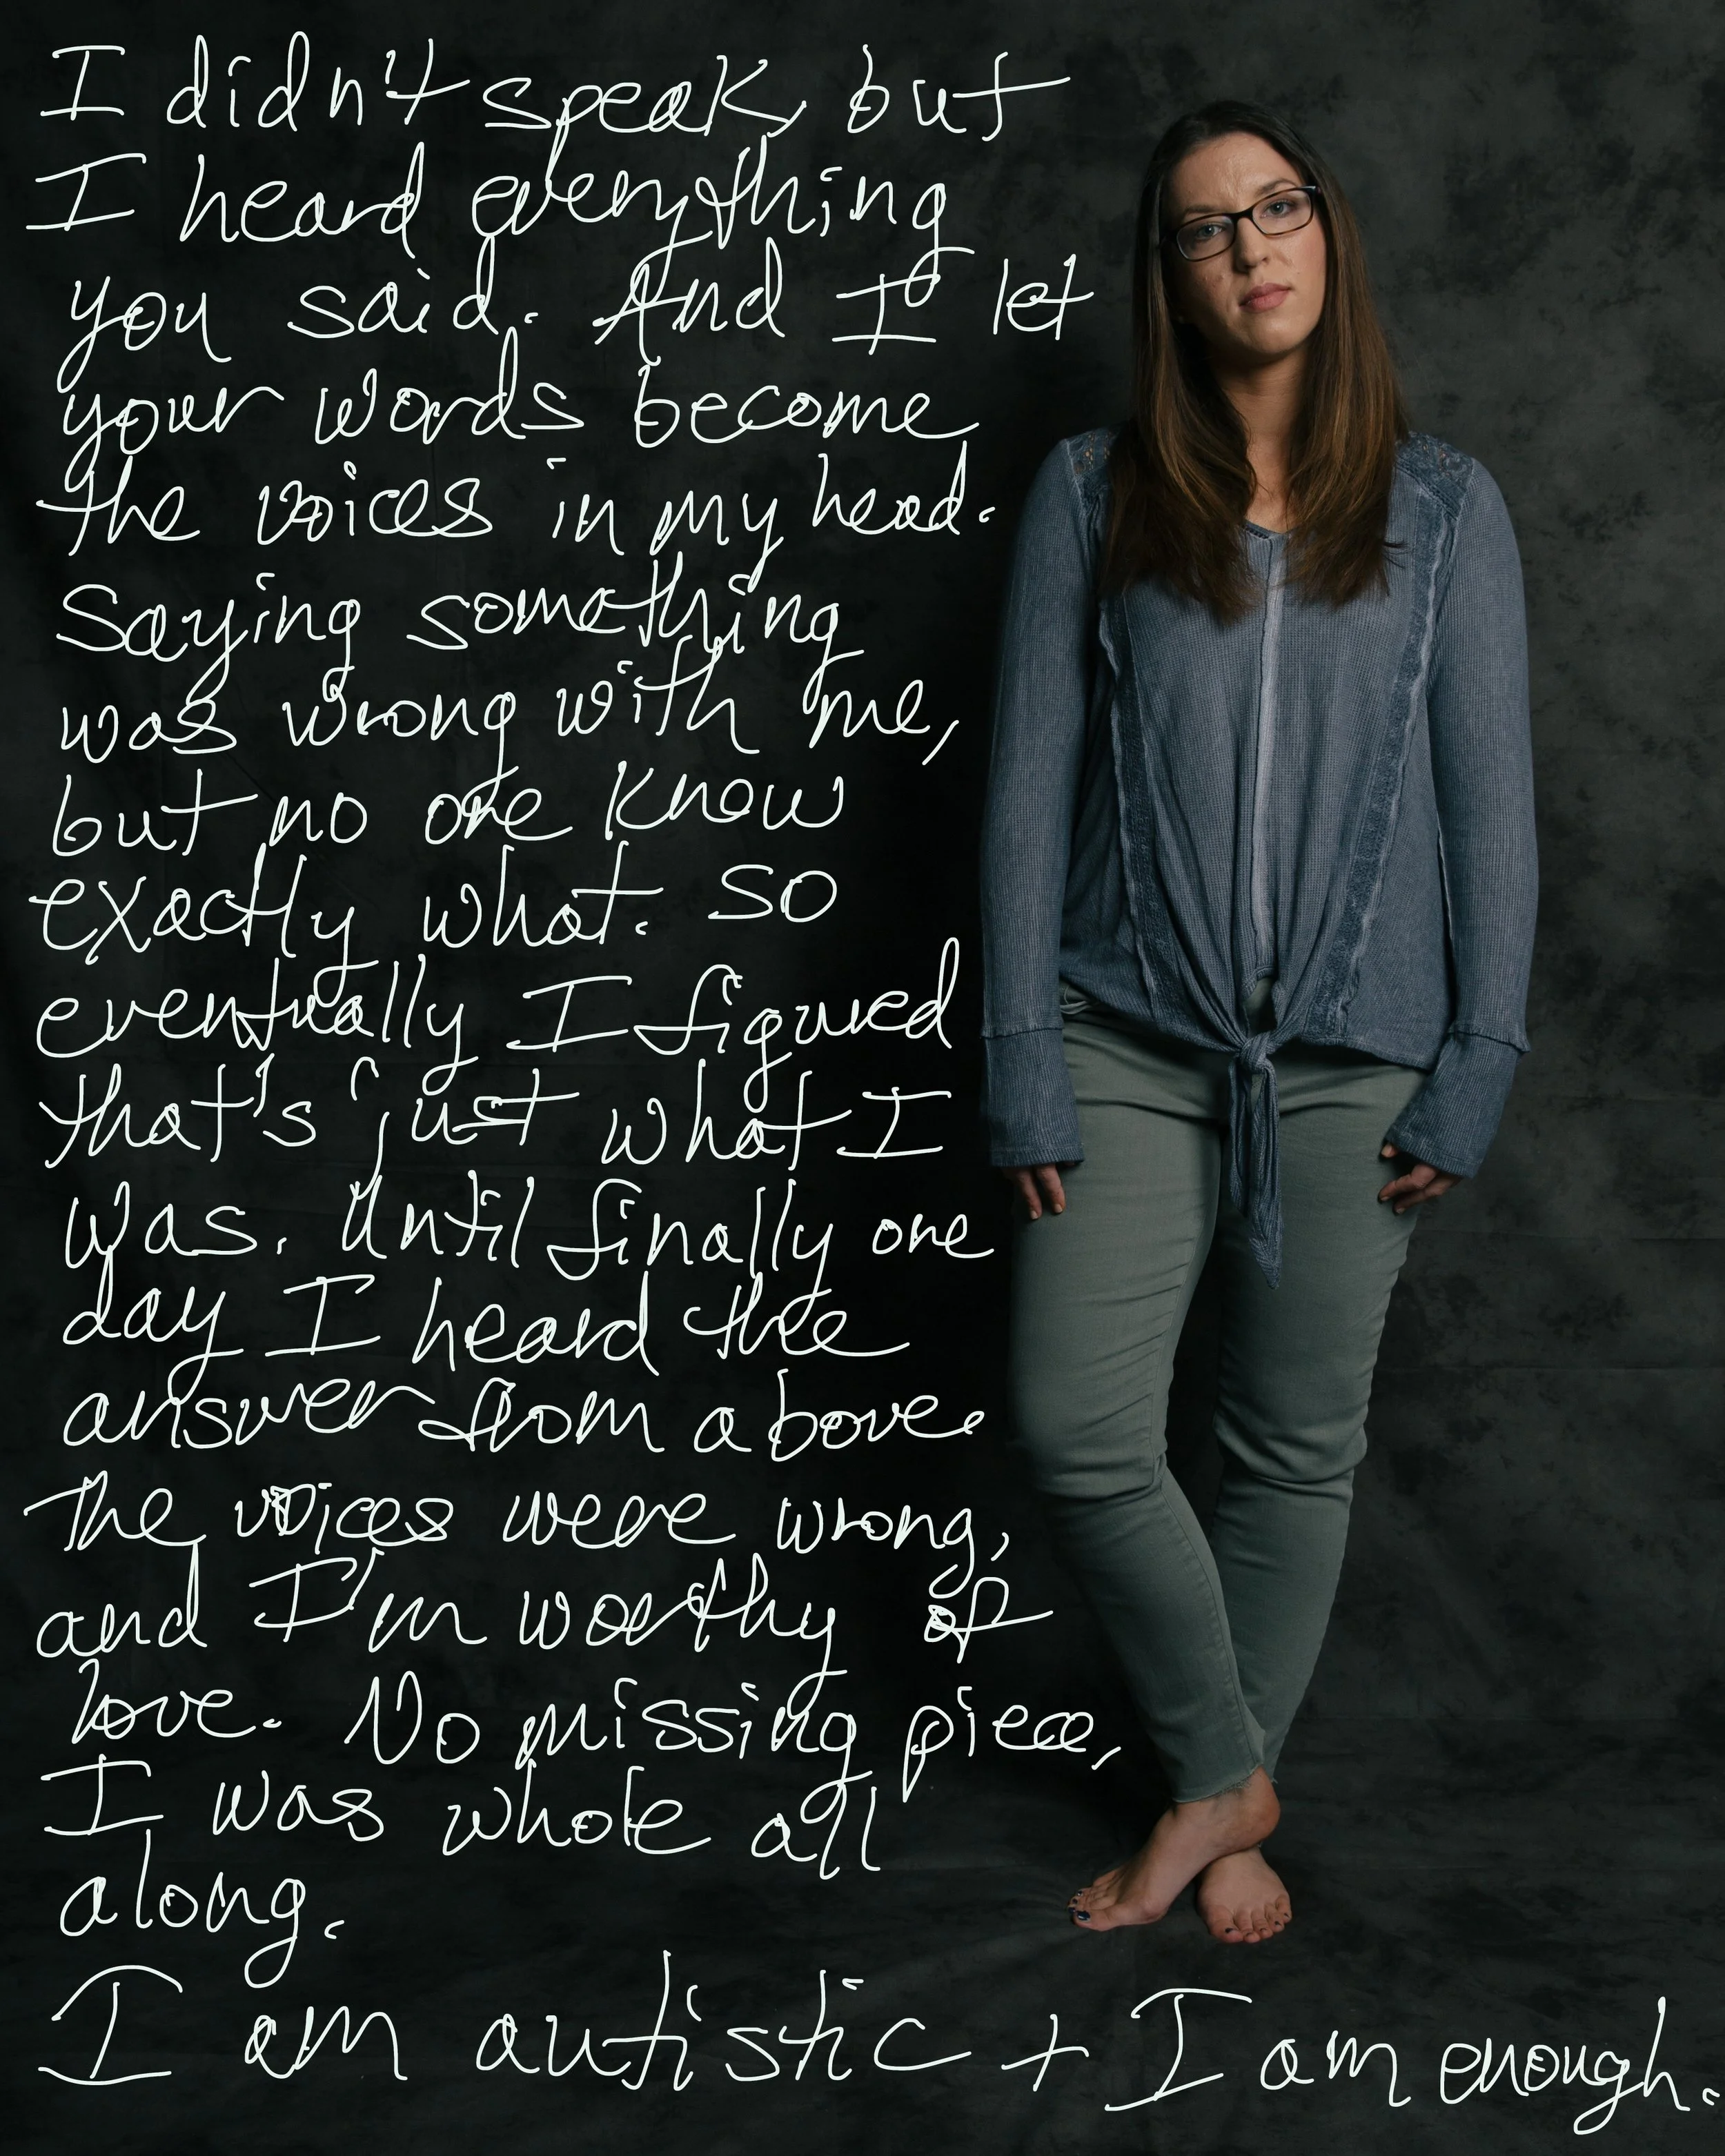 I didn't speak, but
I heard everything
you said. And I let
your words become
the voices in my head.
Saying something
was wrong with me,
but no one knew
exactly what. So
eventually I figured
that's just what I
was. Until finally one
day I heard the
answer from above.
The voices were wrong,
and I'm worthy of
love. No missing piece,
I was whole all
along.
I am autistic + I am enough.